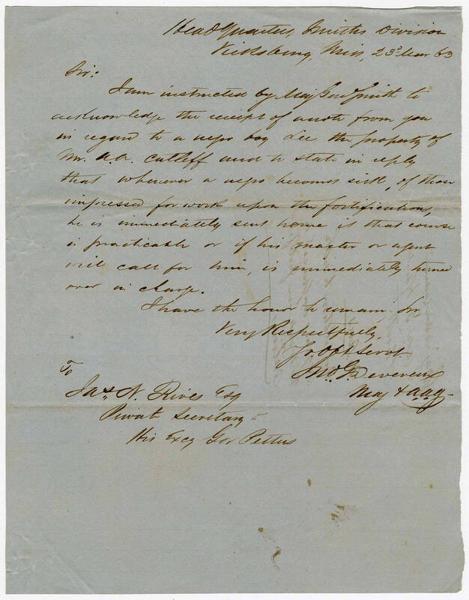 Head Quarters, Smiths Division
Vicksburg, Miss, 23d Mar 63
Sir:
I am instructed by Maj Gen Smith to
acknowledge the receipt of a note from you
in regard to a negro boy Lee the property of
Mr. and to state in reply
that whenever a negro becomes sick, of those
impressed for work upon the fortifications,
he is immediately sent home if that course
is practicable or if his master or agent
will call for him, is immediately turned
over in charge.
I have the honor to remain Sir
Very Respectfully
Yr Obt Servt
Jno G Devereux
Maj & AAG
To
Jas. N. Rives Esq
Private Secretary
His Excy Gov Pettus